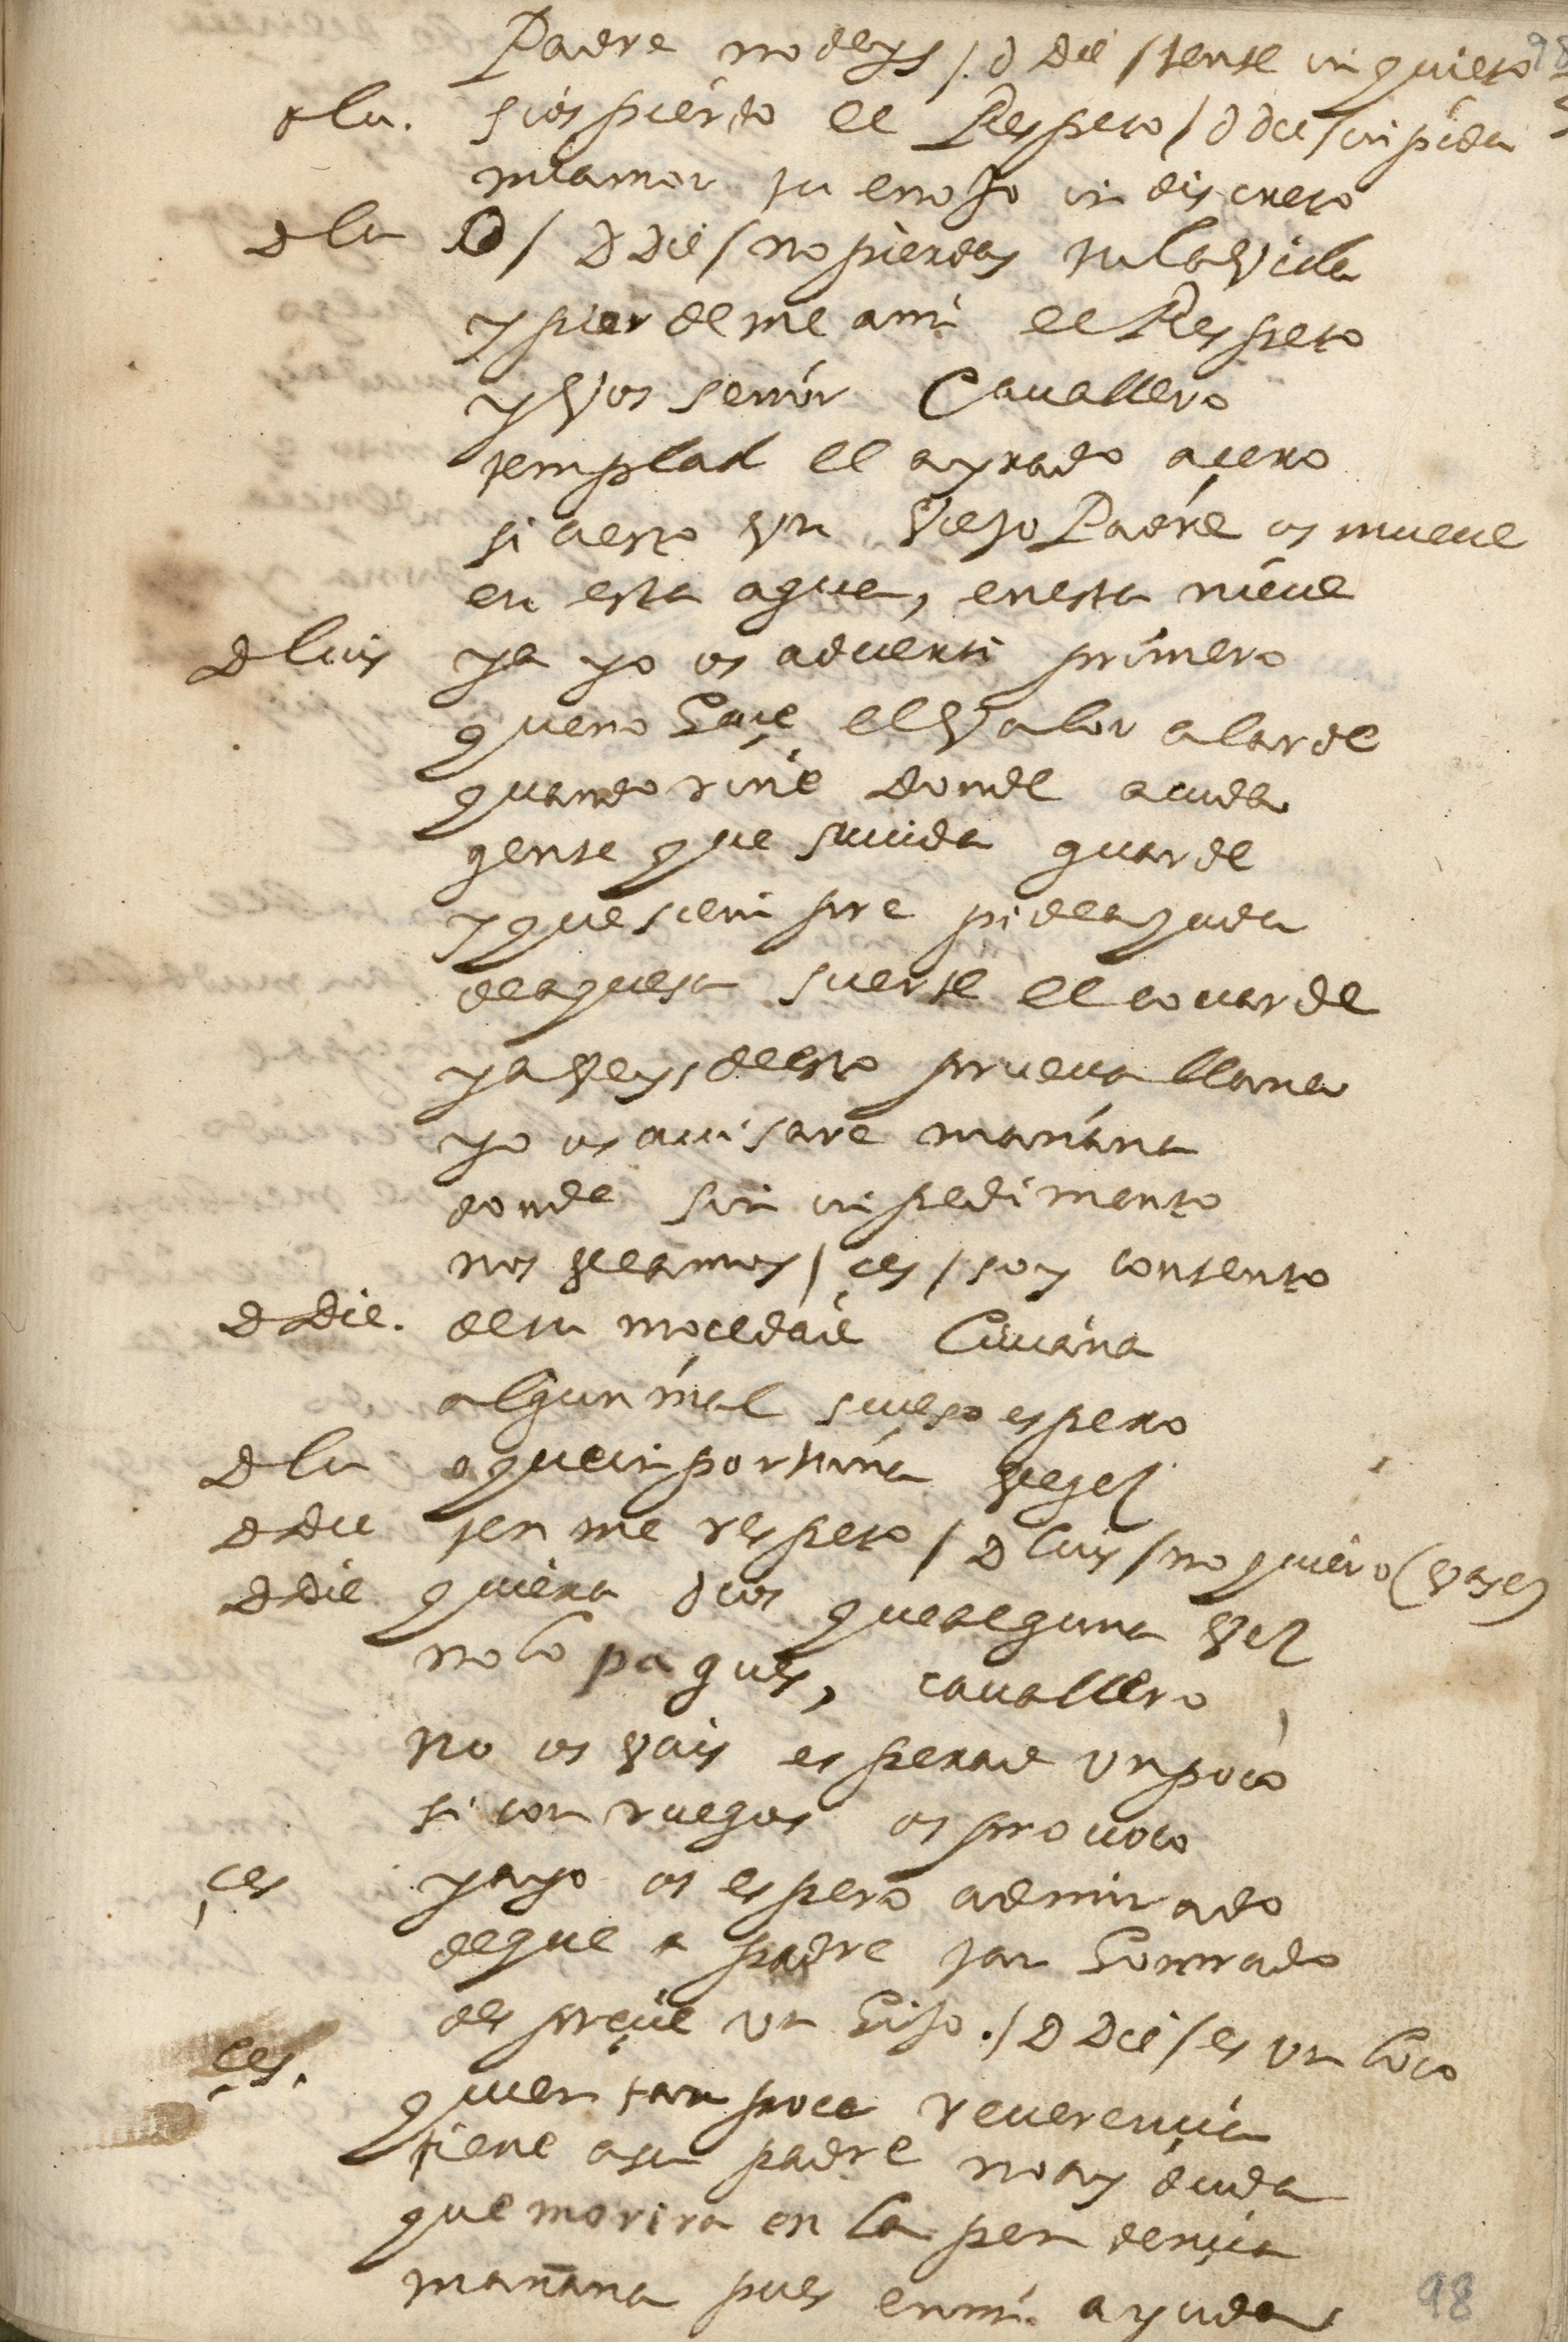 Padre no deys /. d die / tente inquieto 98
d lu. si os pierdo el Respeto / d die / inpida
mi amor tu enojo indiscreto
D lu O / D Die / no pierdas tu la vida
y pierdeme a mi el Respeto
y vos señor Cavallero
templad el ayrado açero
si a esto un viejo Padre os mueve
en esta agua, en esta nieve
D luis ya yo os adverti primero
que no haçe el valor alarde
quando riñe donde acuda
gente que su vida guarde
y que siempre pide ayuda
de aquesta suerte el covarde
ya veys de esto prueva llana
yo os avisare mañana
donde sin inpedimento
nos veamos / çes / soy contento
D Die. de su moçedad liviana
algun mal suçeso espero
D lu o que inportuna vegez
D Die ten me respeto / D luis / no quiero (vase)
D Die quiera dios que alguna vez
no lo pagues, cavallero
no os vais esperad un poco
si con ruegos os provoco
çes ya yo os espero admirado
de que a padre tan honrrado
despreçie un hijo. / D Die / es un loco
çes. quien tan poca reverençia
tiene a su padre no ay duda
que morira en la pendençia
mañana pues en mi ayuda
98